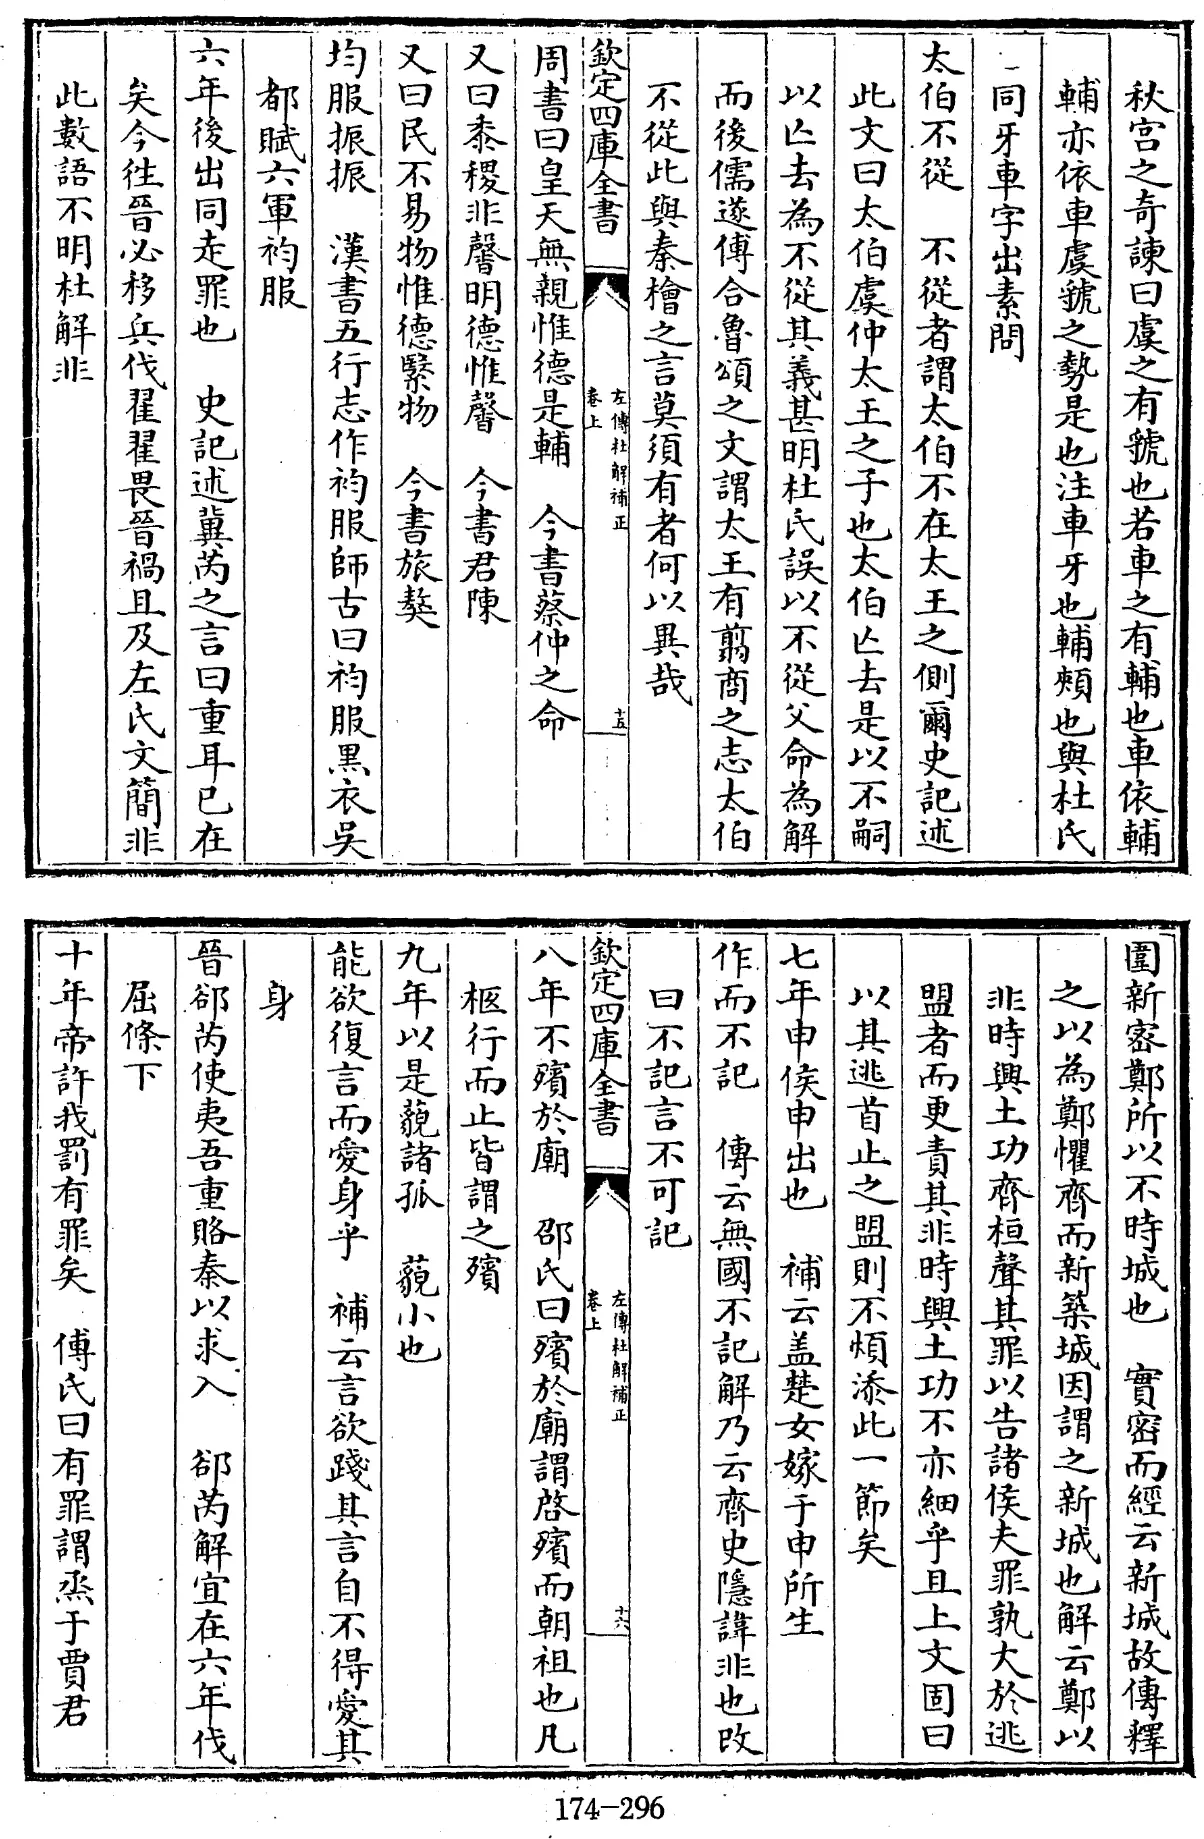 秋宫之奇諫曰虞之有虢也若車之有輔也車依輔
輔亦依車虞虢之勢是也注車牙也輔頰也與杜氏
同牙車字出素問
太伯不從　不從者謂太伯不在太王之側爾史記述
此文曰太伯虞仲太王之子也太伯亾去是以不嗣
以亾去為不從其義甚明杜氏誤以不從父命為解
而後儒遂傅合魯頌之文謂太王有翦商之志太伯
不從此與秦檜之言莫須有者何以異哉
欽定四庫全書
左傳杜解補正
卷上
十五
周書曰皇天無親惟德是輔　今書蔡仲之命
又曰黍稷非馨明德惟馨　今書君陳
又曰民不易物惟德繄物　今書旅獒
均服振振　漢書五行志作袀服師古曰袀服黑衣吳
都賦六軍袀服
六年後出同走罪也　史記述冀芮之言曰重耳已在
矣今徃晉必移兵伐翟翟畏晉禍且及左氏文簡非
此數語不明杜解非
圍新密鄭所以不時城也　實密而經云新城故傳釋
之以為鄭懼齊而新築城因謂之新城也解云鄭以
非時興土功齊桓聲其罪以告諸侯夫罪孰大於逃
盟者而更責其非時興土功不亦細乎且上文固曰
以其逃首止之盟則不煩添此一節矣
七年申侯申出也　補云盖楚女嫁于申所生
作而不記　傳云無國不記解乃云齊史隱諱非也改
曰不記言不可記
欽定四庫全書
左傳杜解補正
卷上
十六
八年不殯於廟　邵氏曰殯於廟謂啓殯而朝祖也凡
柩行而止皆謂之殯
九年以是藐諸孤　藐小也
能欲復言而愛身乎　補云言欲踐其言自不得愛其
身
晉郤芮使夷吾重賂秦以求入　郤芮解宜在六年伐
屈條下
十年帝許我罰有罪矣　傅氏曰有罪謂烝于賈君
174-296